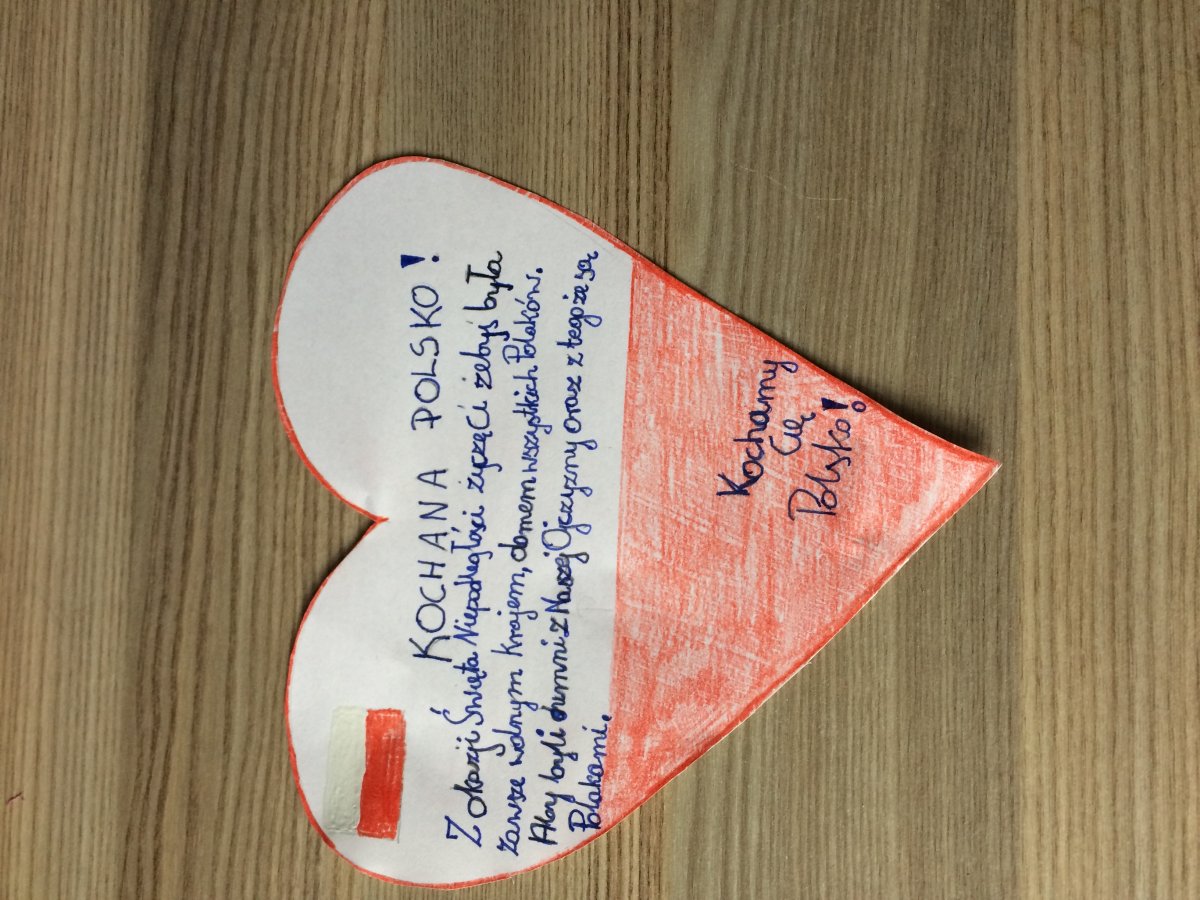 KOCHANA POLSKO!
Z okazji Święta Niepodległości życzę Ci żebyś była
zawsze wolnym krajem, domem wszystkich Polaków.
Aby byli dumni z Naszej Ojczyzny oraz z tego że są
Polakami.
Kochamy
Cię
Polsko!